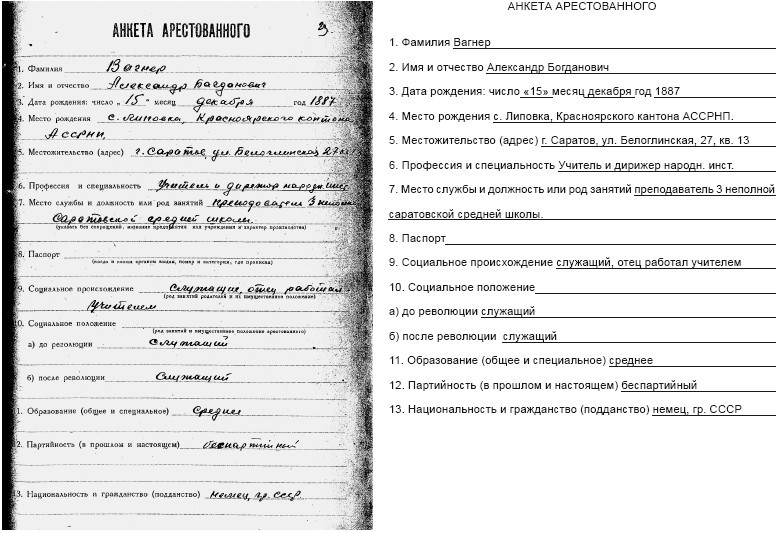 АНКЕТА АРЕСТОВАННОГО
1. Фамилия Вагнер
2. Имя и отчество Александр Богданович
3. Дата рождения: число „15" месяц декабря год 1887
4. Место рождения с. Липовка, Красноярского кантона
АССРНП.
5. Местожительство (адрес) г. Саратов, ул. Белоглинская 27
6. Профессия и специальность Учитель и дирижер народн. инст.
7. Место службы и должность или род занятий преподаватель 3 непол
Саратовской средней школы.
(указать без сокращений, название предприятия или учреждения и характер производства)
8. Паспорт
(когда и каким органом выдан, номер и категория, где прописан)
9. Социальное происхождение служащие, отец работал
(род занятий родителей и их имущественное положение)
учителем
10. Социальное положение
(род занятий и имущественное положение арестованного)
а) до революции служащий
б) после революции служащий
1. Образование (общее и специальное) среднее
2. Партийность (в прошлом и настоящем) беспартийный
3. Национальность и гражданство (подданство) немец, гр. СССР
АНКЕТА АРЕСТОВАННОГО
1. Фамилия Вагнер
2. Имя и отчество Александр Богданович
3. Дата рождения: число «15» месяц декабря год 1887
4. Место рождения с. Липовка, Красноярского кантона АССРНП.
5. Местожительство (адрес) г. Саратов, ул. Белоглинская, 27, кв. 13
6. Профессия и специальность Учитель и дирижер народн. инст.
7. Место службы и должность или род занятий преподаватель 3 неполной
саратовской средней школы.
8. Паспорт
9. Социальное происхождение служащий, отец работал учителем
10. Социальное положение
а) до революции служащий
б) после революции служащий
11. Образование (общее и специальное) среднее
12. Партийность (в прошлом и настоящем) беспартийный
13. Национальность и гражданство (подданство) немец, гр. СССР